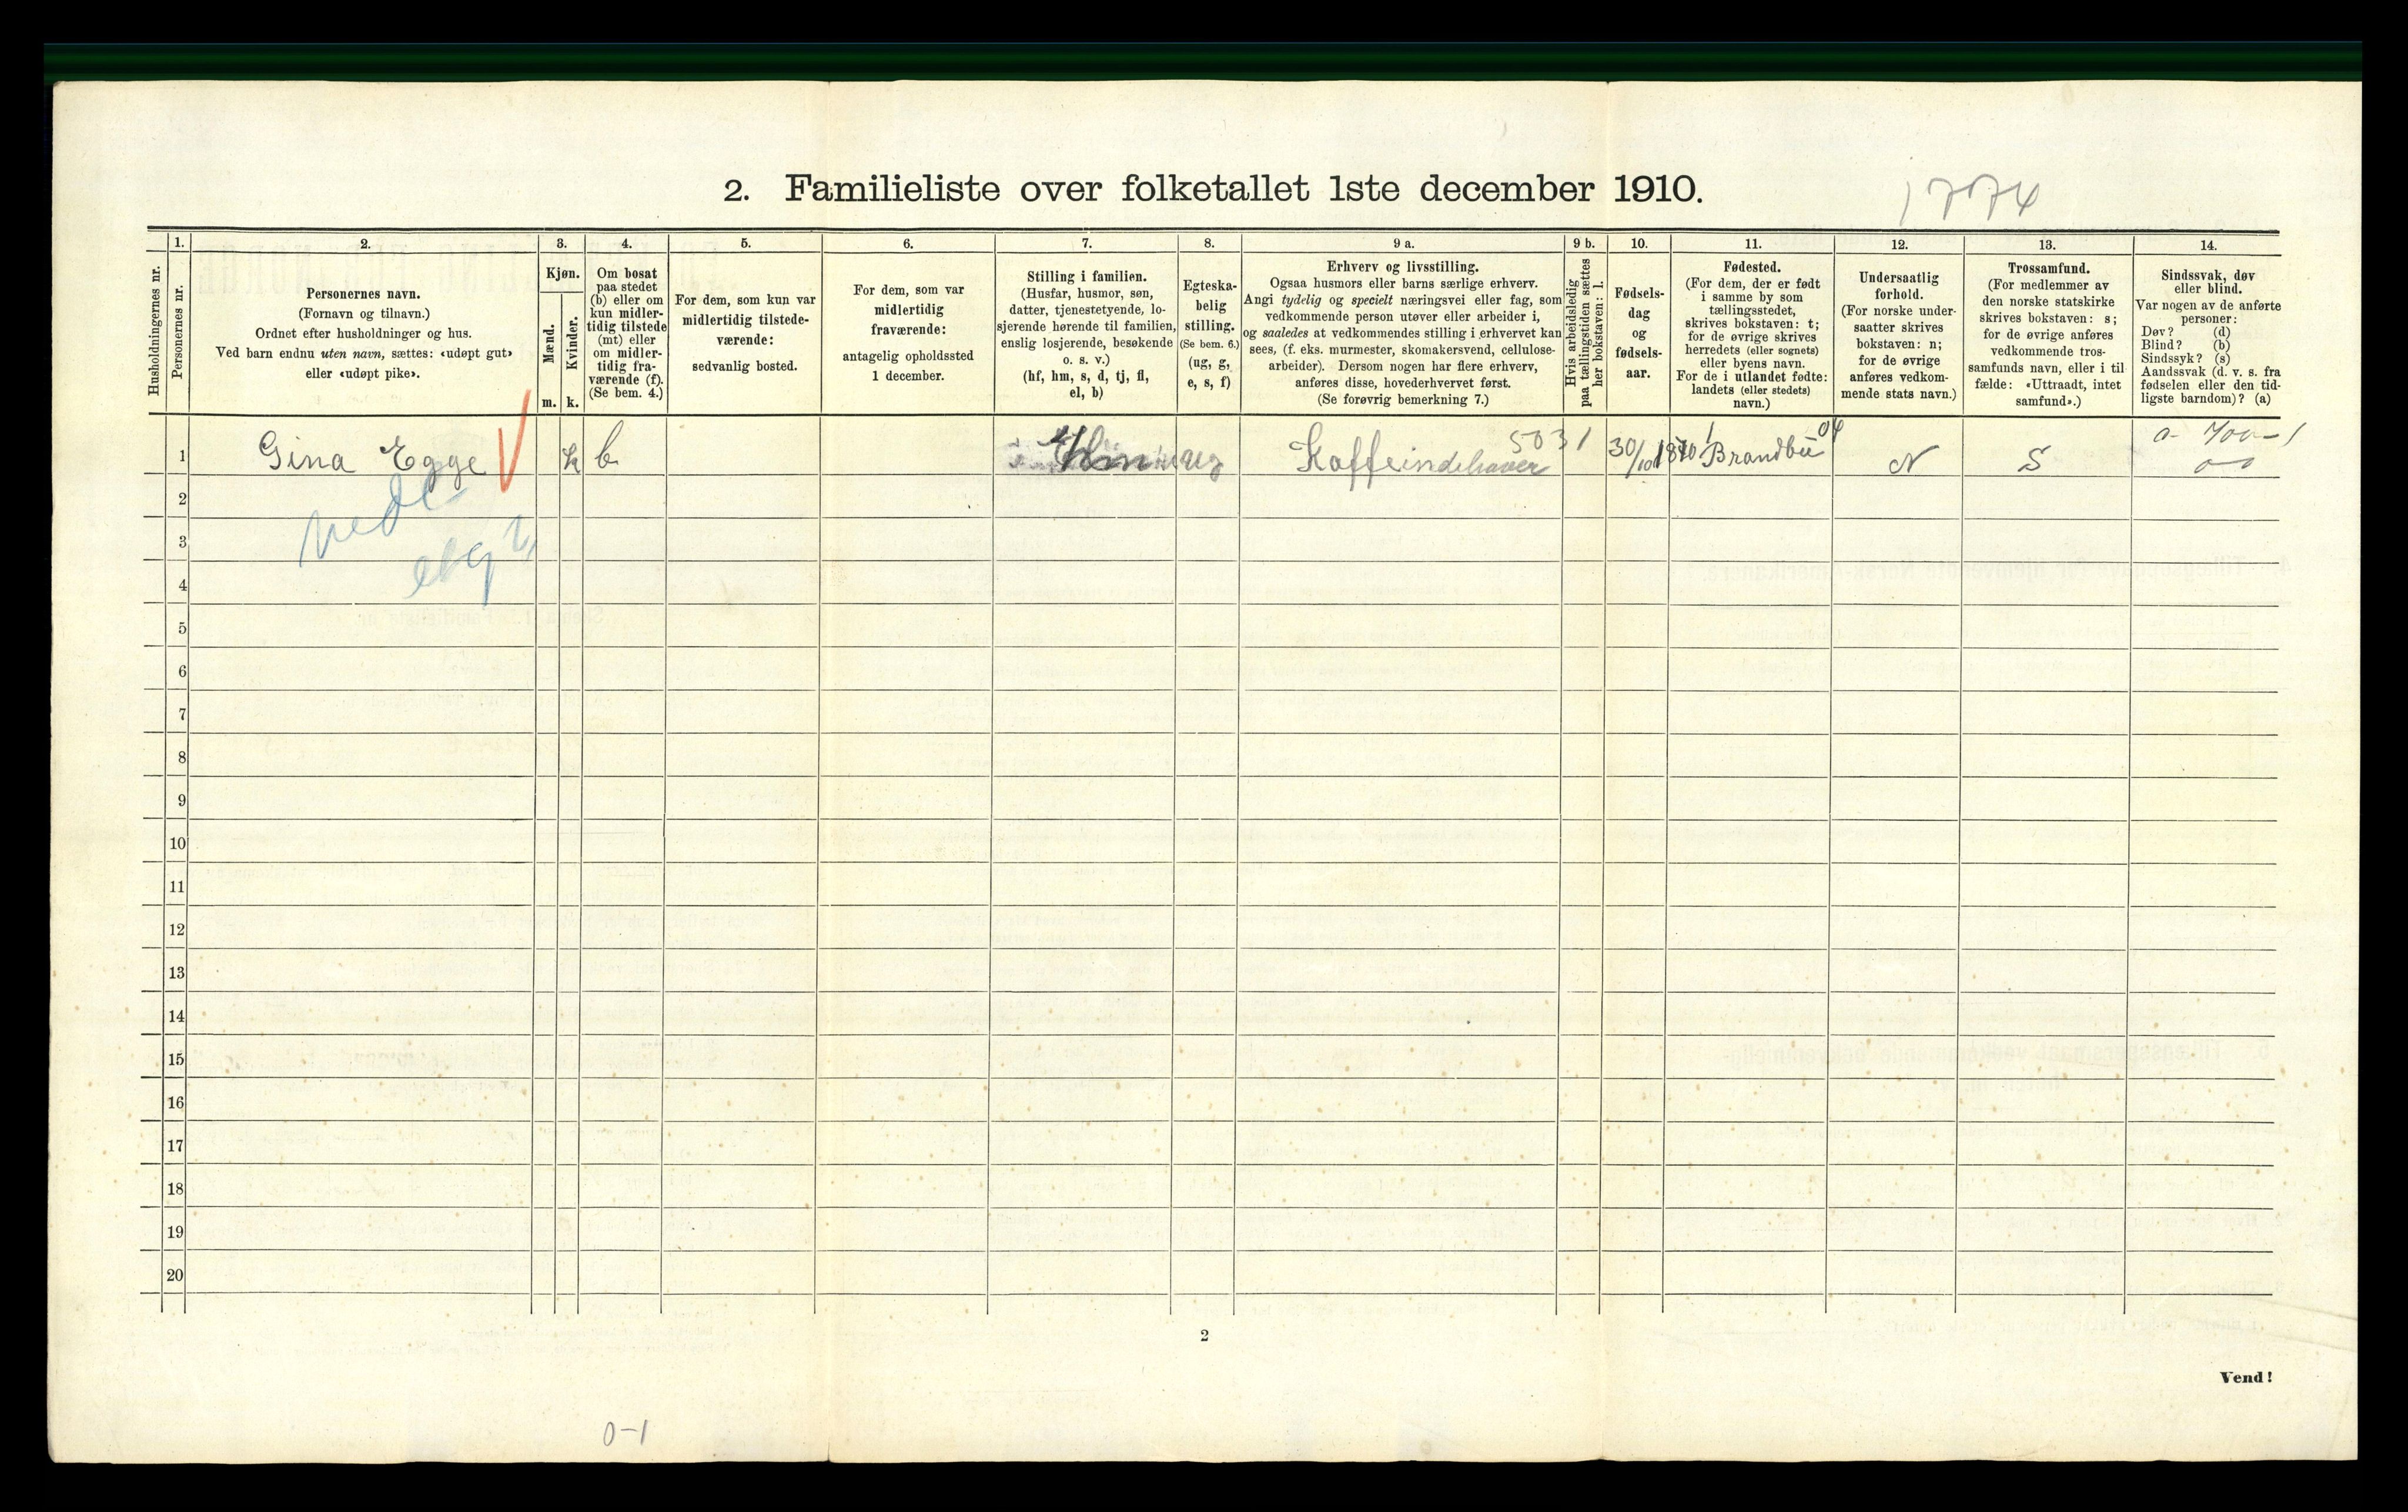 2. Familieliste over folketallet 1ste december 1910.
1774
Husholdningernes nr.
1.
Personernes nr.
2.
Personernes navn.
(Fornavn og tilnavn.)
Ordnet efter husholdninger og hus.
Ved barn endnu uten navn, sættes: «udøpt gut»
eller «udøpt pike».
3.
Kjøn.
Mænd.
Kvinder.
m. k.
4.
Om bosat
paa stedet
(b) eller om
kun midler-
tidig tilstede
(mt) eller
om midler-
tidig fra-
værende (f).
(Se bem. 4.)
5.
For dem, som kun var
midlertidig tilstede-
værende:
sedvanlig bosted.
6.
For dem, som var
midlertidig
fraværende:
antagelig opholdssted
1 december.
7.
Stilling i familien.
(Husfar, husmor, søn,
datter, tjenestetyende, lo-
sjerende hørende til familien,
enslig losjerende, besøkende
o. s. v.)
(hf, hm, s, d, tj, fl,
el, b)
8.
Egteska-
belig
stilling.
(Se bem. 6.)
(ug, g,
e, s, f)
9 a.
Erhverv og livsstilling.
Ogsaa husmors eller barns særlige erhverv.
Angi tydelig og specielt næringsvei eller fag, som
vedkommende person utøver eller arbeider i,
og saaledes at vedkommendes stilling i erhvervet kan
sees, (f. eks. murmester, skomakersvend, cellulose-
arbeider). Dersom nogen har flere erhverv,
anføres disse, hovederhvervet først.
(Se forøvrig bemerkning 7.)
9 b.
Hvis arbeidsledig
paa tællingstiden sættes
her bokstaven: l.
10.
Fødsels-
dag
og
fødsels-
aar.
11.
Fødested.
(For dem, der er født
i samme by som
tællingsstedet,
skrives bokstaven: t;
for de øvrige skrives
herredets (eller sognets)
eller byens navn.
For de i utlandet fødte:
landets (eller stedets)
navn.)
12.
Undersaatlig
forhold.
(For norske under-
saatter skrives
bokstaven: n;
for de øvrige
anføres vedkom-
mende stats navn.)
13.
Trossamfund.
(For medlemmer av
den norske statskirke
skrives bokstaven: s;
for de øvrige anføres
vedkommende tros-
samfunds navn, eller i til
fælde: «Uttraadt, intet
samfund».)
14.
Sindssvak, døv
eller blind.
Var nogen av de anførte
personer:
Døv? (d)
Blind? (b)
Sindssyk? (s)
Aandssvak (d. v. s. fra
fødselen eller den tid-
ligste barndom)? (a)
1 Gina Egge k b Hm ug Kaffeindehaver 5031 30/10 1870 Brandbu 04 N S
2
3
4
5
6
7
8
9
10
11
12
13
14
15
16
17
18
19
20
2
Vend!
0-1